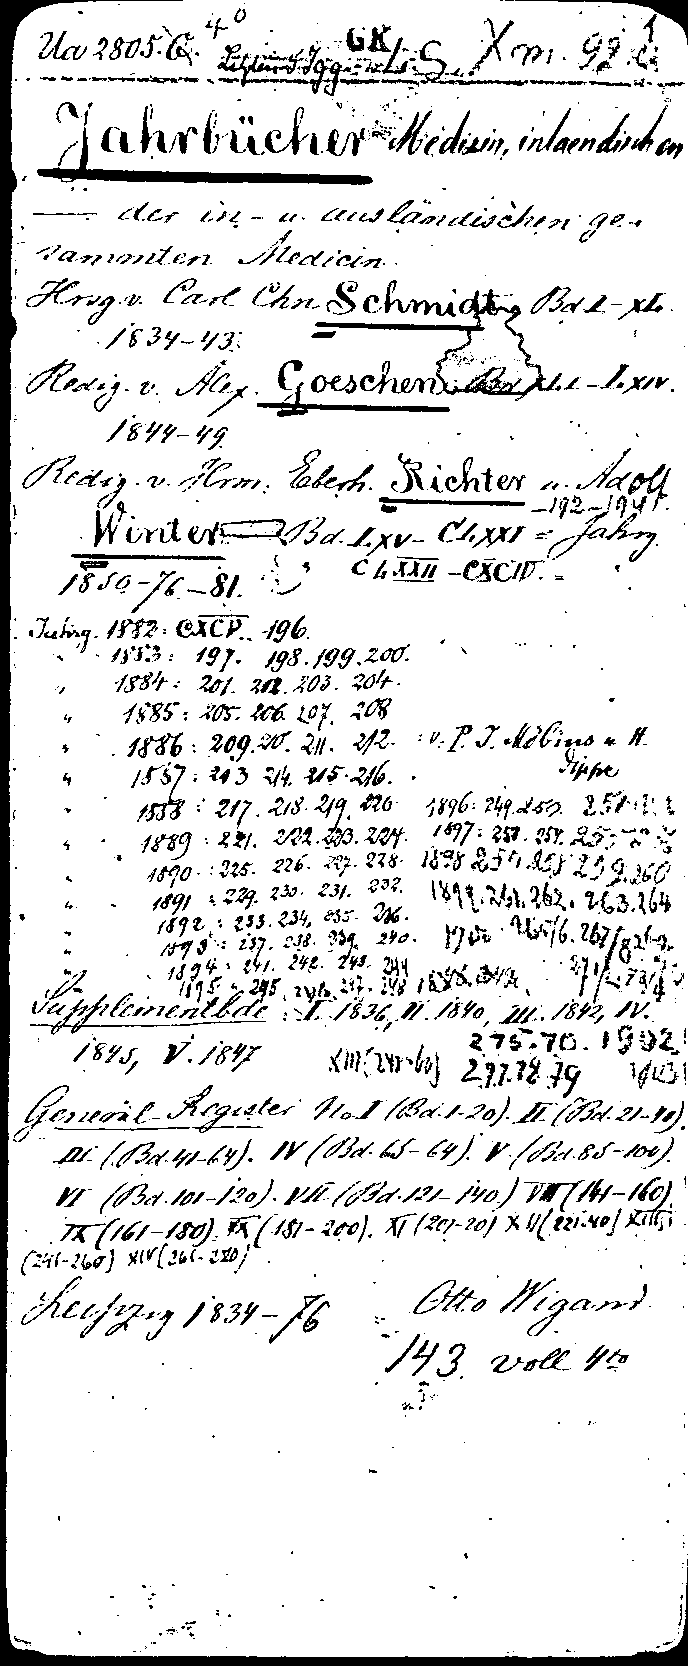 Ua 2805. Q. 4° GK S. Xm. 99.
Jahrbücher Medizin, inlaendischen
— der in- u. ausländischen ge-
sammten Medicin
Hrsg v. Carl Chn. Schmidt Bd I-XL.
1834-43.
Redig. v. Alex. Goeschen Bd XLI-LXIV.
1844-49
Redig. v. Hrm. Eberh. Richter u. Adolf
Winter Bd. LXV- CLXXI = Jahrg
1850-76-81. " CLXXII-CXCIV. =
Jahrg. 1882: CXCV. -196.
" 1883: 197. 198. 199. 200.
" 1884: 201. 202. 203. 204.
" 1885: 205. 206. 207. 208
" 1886: 209. 210. 211. 212. v. P. J. Möbius u. H. Dippe
" 1887: 213 214. 215. 216.
" 1888: 217. 218. 219. 220 1896: 249. 250. 251
" 1889: 221. 222. 223. 224. 1897: 253. 254. 255
" 1890: 225. 226. 227. 228. 1898 257 258 259. 260
" 1891: 229. 230. 231. 232. 1899. 261. 262. 263. 264
" 1892: 233. 234. 235. 236. 1900 265/6. 267/8
" 1893: 237. 238. 239. 240.
" 1894: 241. 242. 243. 244
1895: 245. 246. 247. 248
Supplementbde: I. 1836, II. 1840, III. 1842, IV.
1845, V. 1847 275. 76. 1902
XIII (241-60) 277. 78. 79
General-Register No. I (Bd. 1-20). II (Bd. 21-40).
III (Bd. 41-64). IV (Bd. 65-84). V (Bd. 85-100).
VI (Bd. 101-120). VII (Bd. 121-140) VIII (141-160)
IX (161-180). X (181-200). XI (201-20) XII (221-40) XIII
(241-260) XIV (261-280)
Leipzig 1834-76 Otto Wigand
143 voll 4to